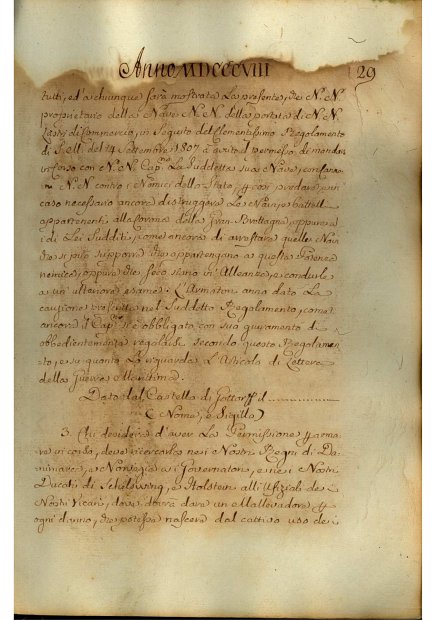 Anno MDCCCVIII
29
tutti, ed a chiunque sarà mostrata La presente, che N. N.
proprietario della Nave N. N. della portata di N. N.
Lastri di Commercio, in Seguito del Clementissimo Regolamento
di Sell. del 14 Settembre 1807 à avuto il permesso di mandar
in Corso con N. N. Cap.º La Suddetta sua Nave, con
N. N. contro i Nemici dello Stato, p così predare, e in
caso necessario ancora distruggere Le Navi, e battell
appartenenti alla Corona della Gran Brettagna, oppure a
i di Lei Sudditi, come ancora di arrestare quelle Navi
che si può supporre che appartengano a questa Potenza
nemica, oppure che seco siano in Alleanza, e condurle
a un' ulteriore esame. L'Armator anna dato La
cauzione prescritta nel Suddetto Regolamento, come
ancora il Cap. si è obbligato con suo giuramento di
obbedientemente regolarsi secondo questo Regolamen-
to, e su quanto Lo riguarda L'Articolo di Lettere
della Guerra Marittima.
Dato dal Castello di Gottorff il
(Nome, e Sigillo)
3. Chi desidera d'aver La Permissione p armare
in corso, deve ricercarla nei Nostri Regni di Da-
nimarca, e Norvegia a i Governatori, e nei Nostri
Ducati di Schelswing, e Holstein alli Ufizioli de
Nostri Vicari, dove dovrà dare un Mallevadore p
ogni danno, che potesse nascere dal cattivo uso de i